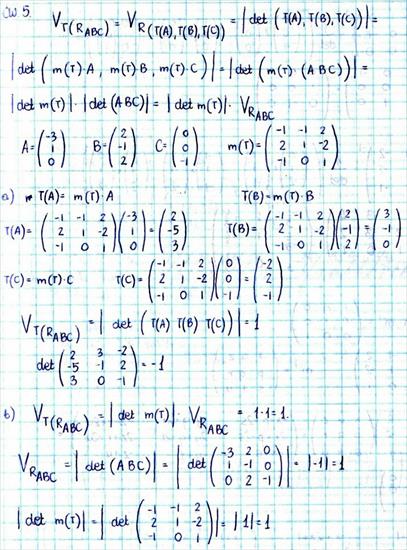 ĆW 5.
V_{T(R_{ABC})} = V_{R(T(A), T(B), T(C))} = |det (T(A), T(B), T(C))| =
|det (m(T)·A, m(T)·B, m(T)·C)| = |det (m(T)·(ABC))| =
|det m(T)|·|det(ABC)| = |det m(T)|· V_{R_{ABC}}
A = (-3 1 0) B = (2 -1 2) C = (0 0 -1) m(T) = (-1 -1 2; 2 1 -2; -1 0 1)
a) T(A) = m(T)·A T(B) = m(T)·B
T(A) = (-1 -1 2; 2 1 -2; -1 0 1)(-3 1 0) = (2 -5 3) T(B) = (-1 -1 2; 2 1 -2; -1 0 1)(2 -1 2) = (3 -1 0)
T(C) = m(T)·C T(C) = (-1 -1 2; 2 1 -2; -1 0 1)(0 0 -1) = (-2 2 -1)
V_{T(R_{ABC})} = |det (T(A) T(B) T(C))| = 1
det (2 3 -2; -5 -1 2; 3 0 -1) = -1
b) V_{T(R_{ABC})} = |det m(T)|· V_{R_{ABC}} = 1·1 = 1.
V_{R_{ABC}} = |det (ABC)| = |det (-3 2 0; 1 -1 0; 0 2 -1)| = |-1| = 1
|det m(T)| = |det (-1 -1 2; 2 1 -2; -1 0 1)| = |1| = 1